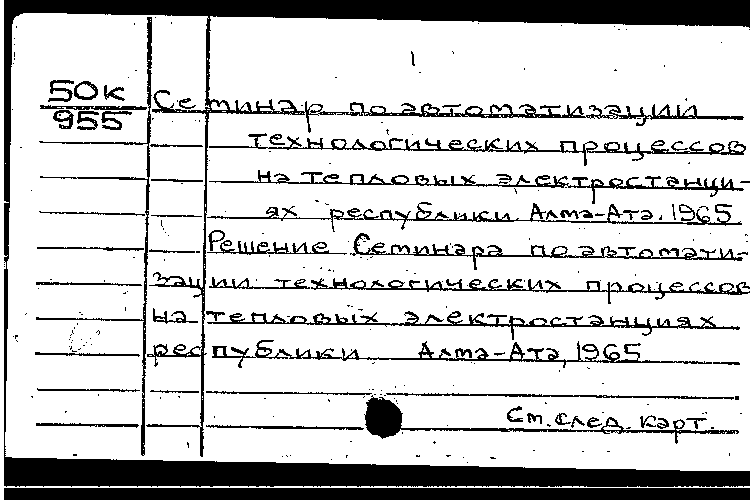 50К
955
Семинар по автоматизации
технологических процессов
на тепловых электростанци-
ях республики. Алма-Ата, 1965
Решение Семинара по автомати-
зации технологических процессов
на тепловых электростанциях
республики Алма-Ата, 1965
См. след. карт.